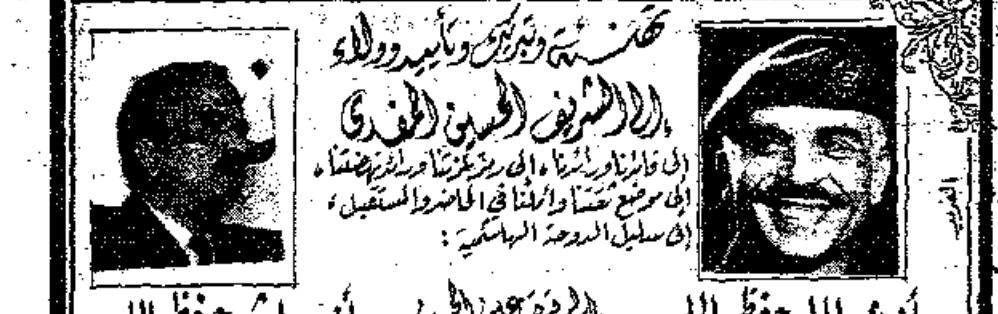 تهنئة وتبريك وتأييد وولاء
إلى الشريف الحسين المفدى
إلى قائدنا ورائدنا، إلى رمز عزتنا ورائد نهضتنا،
إلى موضع ثقتنا وأملنا في الحاضر والمستقبل،
إلى سليل الدوحة الهاشمية :